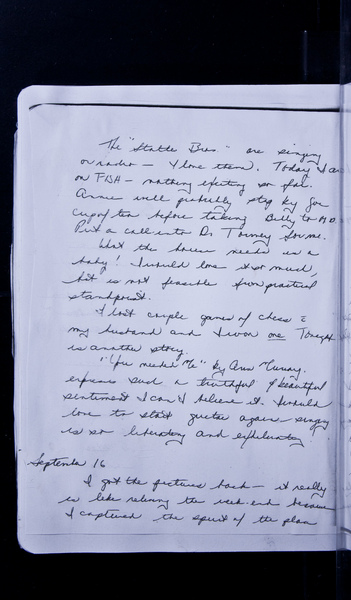 The "Statler Bros." are singing
on radio — I love them. Today I am
on FBA — nothing exciting so far.
Annie will probably stop by for
cup of tea before taking Billy to M.D.
Put a call into Dr. Torney for me.
What the house needs is a
baby! I would love it so much,
but is not feasible from practical
standpoint.
I lost couple games of chess c̄
my husband and I won one. Tonight
is another story.
"You needed Me" by Ann Murray.
express such a truthful & beautiful
sentiment I can't believe it. I would
love to start guitar again — singing
is so liberating and exhilarating.
September 16
I got the pictures back — it really
is like reliving the week-end because
I captured the spirit of the place